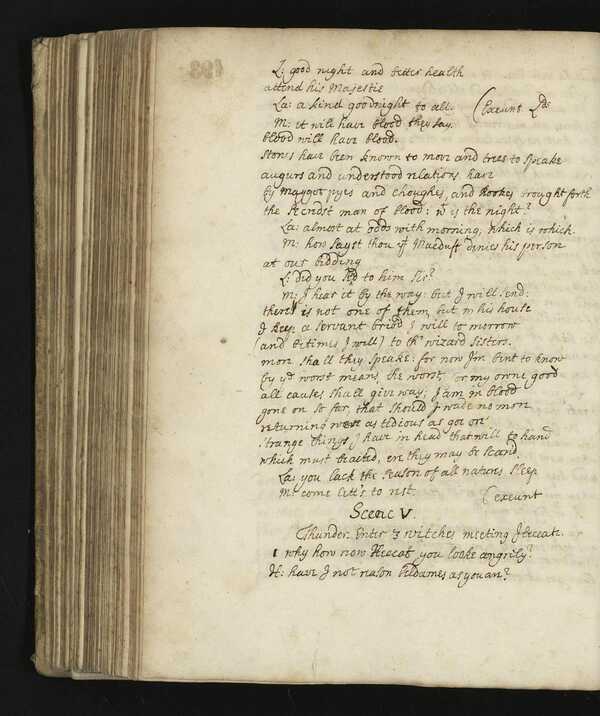 L: good night and better health
attend his Majestie
La: a kind goodnight to all. (Exeunt Lds
M: it will have blood they say.
blood will have blood.
stones have been known to move and trees to speake
augurs and understood relations have
by maggot pyes and choughes, and Rookes brought forth
the secretst man of blood: wt is the night?
La: almost at odds with morning, which is which.
M: how sayst thou yt Macduff denies his person
at our bidding
L: did you send to him Sr?
M: I hear it by the way: but I will send:
there's is not one of them, but in his house
I keep a servant bribd I will to morrow
(and betimes I will) to the wizard sisters.
more shall they speake: for now I'm bent to know
by ye worst means, the worst, for my owne good
all causes shall give way; I am in blood
gone on so far, that should I wade no more
returning were as tedious as goe on
strange things I have in head that will to hand
which must be acted, ere they may be scand.
La: you lack the season of all natures sleep
M: come lett's to rest. (exeunt
Scene V.
Thunder. Enter 3 witches meeting Heccat.
1 why how now Heccat you looke angrily?
H: have I not reason beldames as you are?